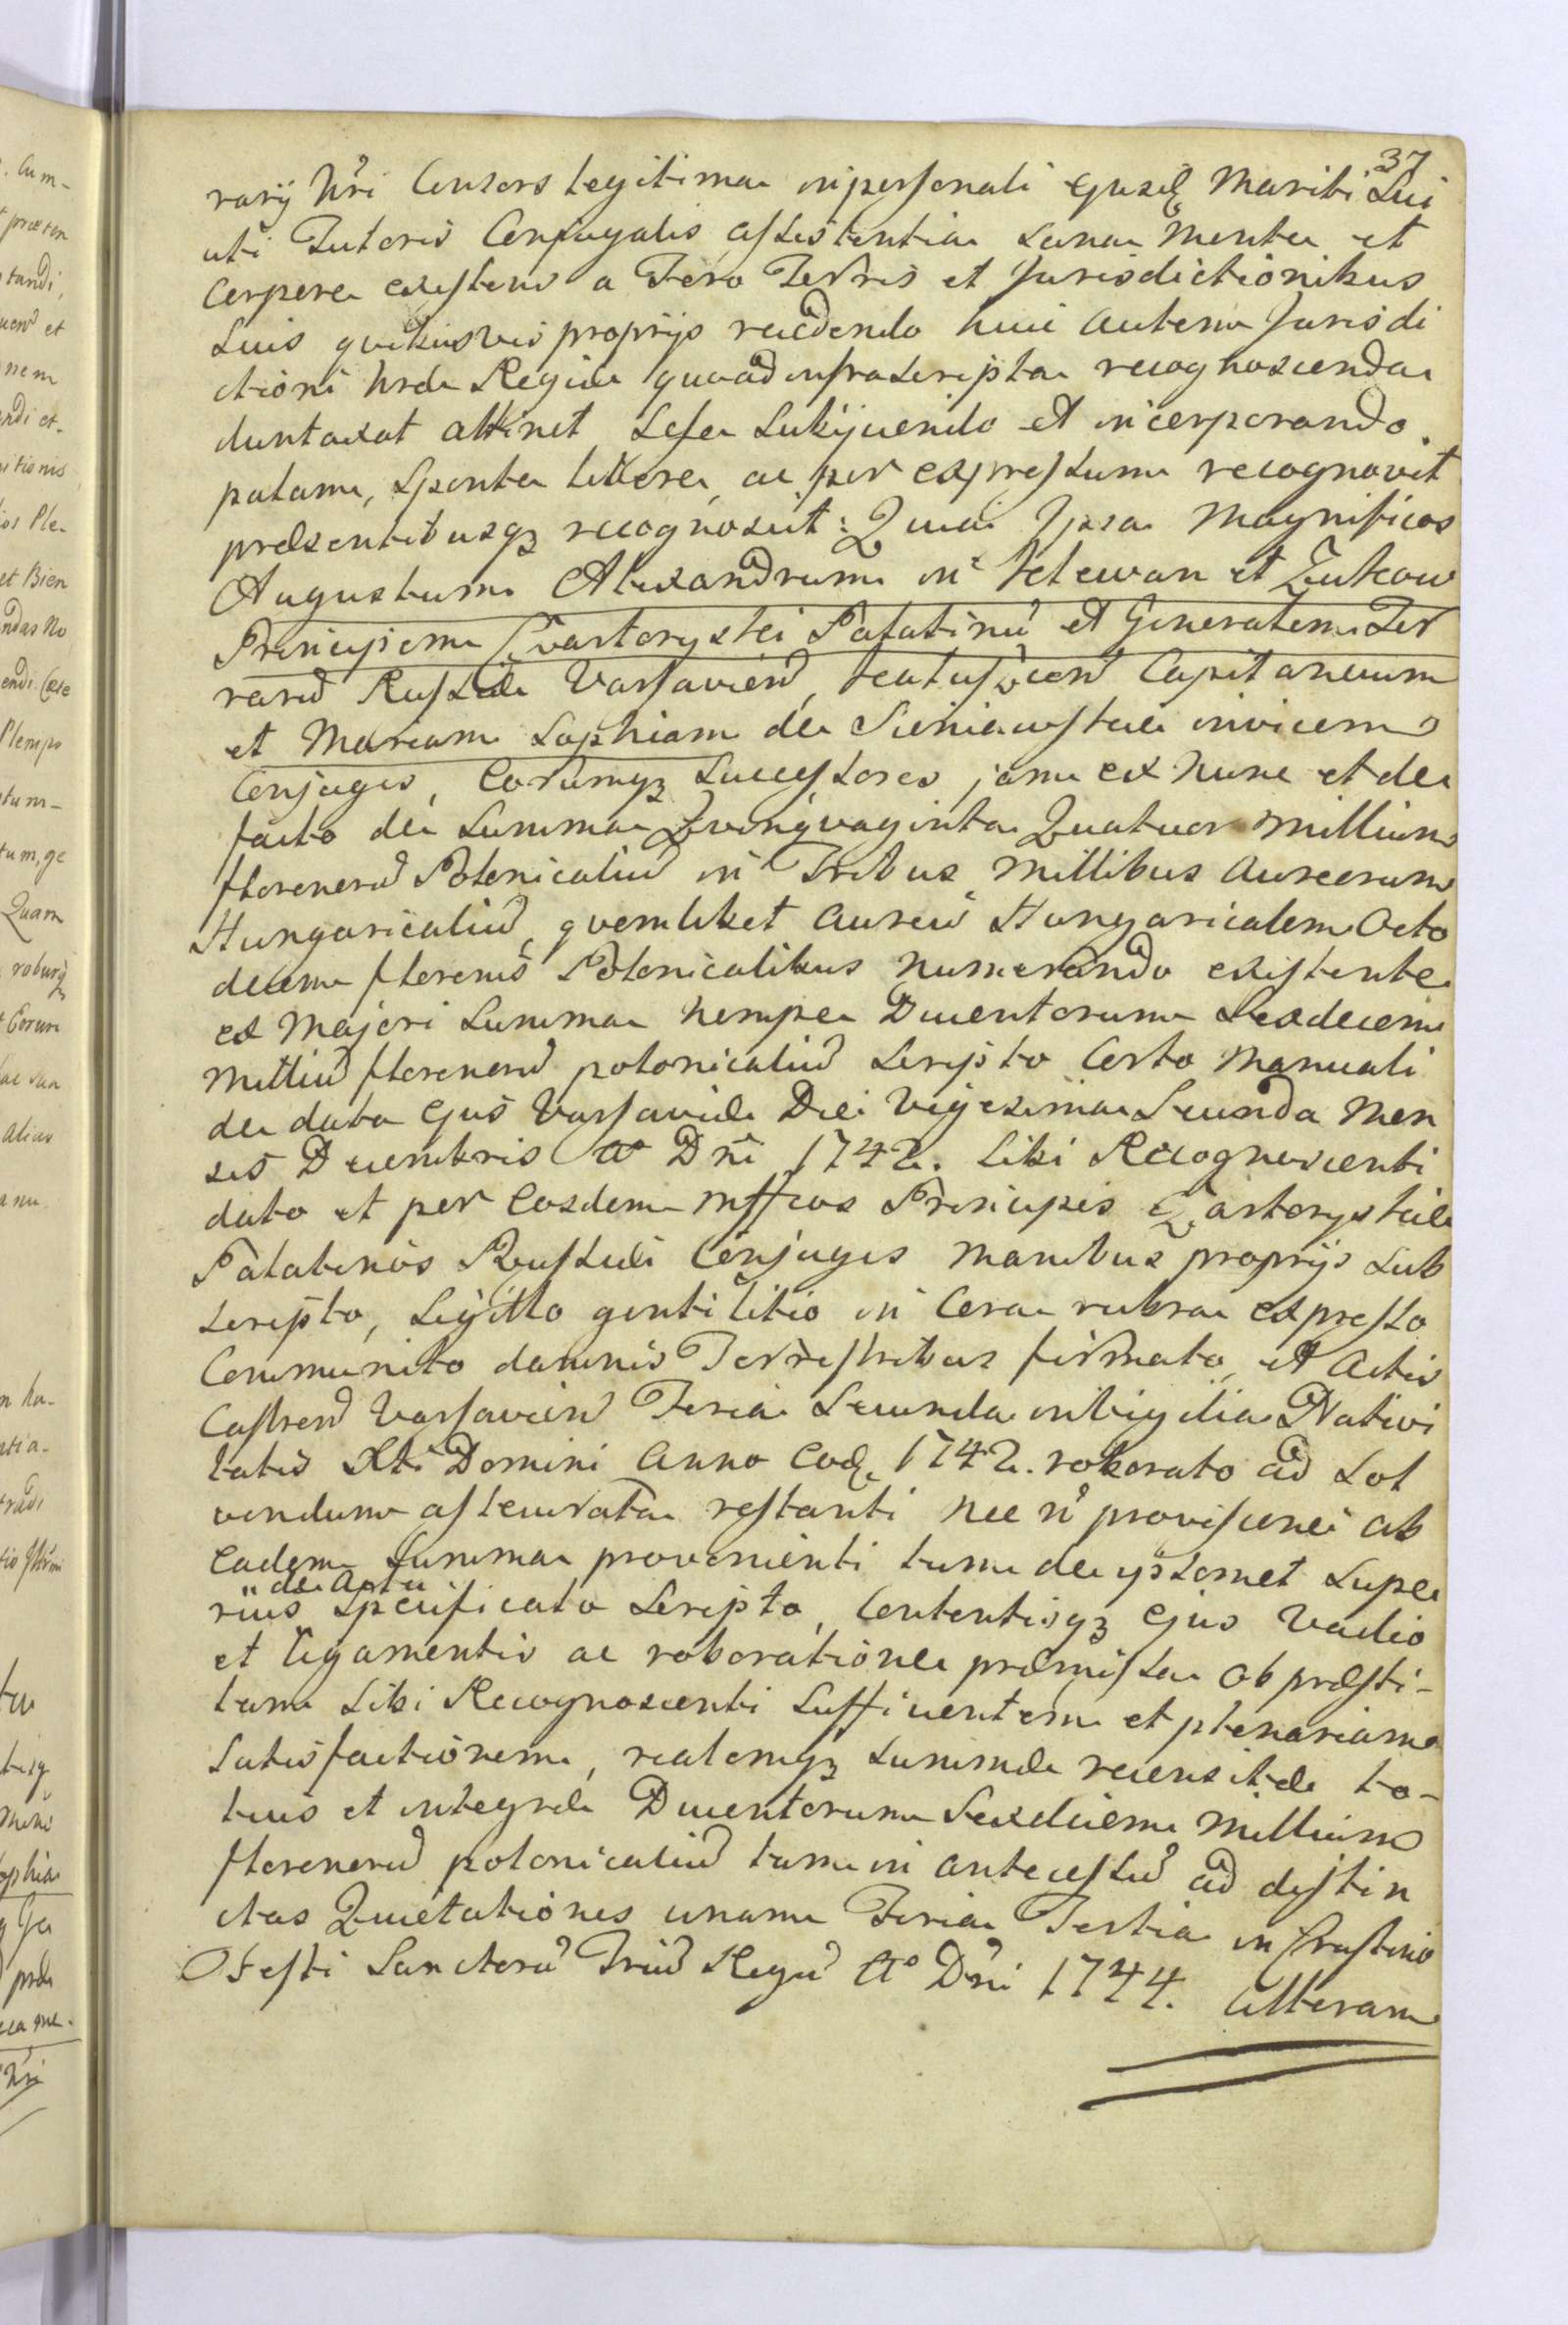 37
rarij Nri Consors legitima in personali ejusd Mariti Sui
uti Tutoris Conjugalis assistentia sana mente et
Corpore existens a Foro Terris et Jurisdictionibus
Suis quibusvis proprijs recedendo huic autem Jurisdi
ctioni Nrae Regiae quoad infrascripta recognoscenda
duntaxat attinet Sese Subijciendo et incorporando.
palam, Sponte libere, ac per expressum recognovit
praesentibusq recognoscit: Quia Ipsa Magnificos
Augustum Alexandrum in Klewan et Zukow
Principem Czartoryski Palatinu et Generalem Ter
raru Russiae Varsavien, Capitaneum
et Mariam Sophiam de Sieniawskie invicem
Conjuges, Eorumq Successores jam ex nunc et de
facto de Summa Qvinqvaginta Quatuor Millium
florenoru Polonicaliu in Tribus Millibus Aureorum
Hungaricaliu, qvemlibet aureu Hungaricalem Octo
decem florenis Polonicalibus numerando existente
ex Majori Summa nempe Ducentorum Sexdecem
Milliu florenoru polonicaliu Scripto Certo Manuali
de data Ejus Varsaviae Die Vigesima Secunda Men
sis Decembris Ao Dni 1742. Sibi Recognoscenti
dato et per Eosdem Mffcos Principes Czartoryskie
Palatinos Russiae Conjuges Manibus proprijs Sub
scripto, Sigillo gentilitio in Cera rubra expresso
Communito damnis Terrestribus firmato, et Actis
Castren Varsavien Feria Secunda in Vigilia Nativi
tatis Xti Domini Anno Eod 1742. roborato ad Sol
vendum assecurata restanti nec n provisione ab
Eadem Summa provenienti tum de ipsomet Supe
" de Actu
rius Specificato Scripto, Contentisq Ejus Vadio
et ligamentis ac roboratione praemissa ob praesti-
tam Sibi Recognoscenti Sufficientem et plenariam
Satisfactionem, realemq Summae recensitae to-
tius et integrae Ducentorum Sexdecem Millium
florenoru polonicaliu tum in antecessu ad distin
ctas Quietationes unam Feria Tertia in Crastino
Festi Sanctoru Triu Regu Ao Dni 1744. Alteram